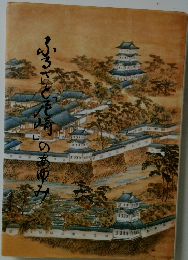 ふるさと「尼崎」のあゆみ